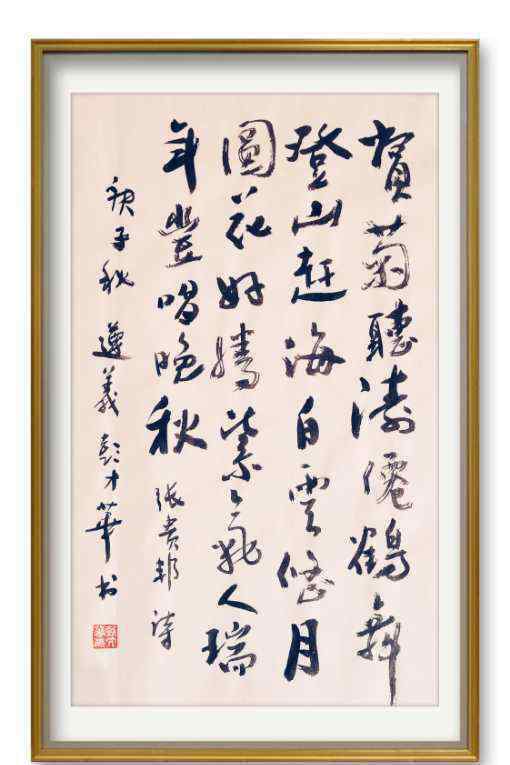 賞菊聽濤僊鶴舞
登山赶海白雲悠月
圓花好騰紫氣人瑞
年豐唱晚秋 張貴邦詩
庚子秋 遵義 彭才華书